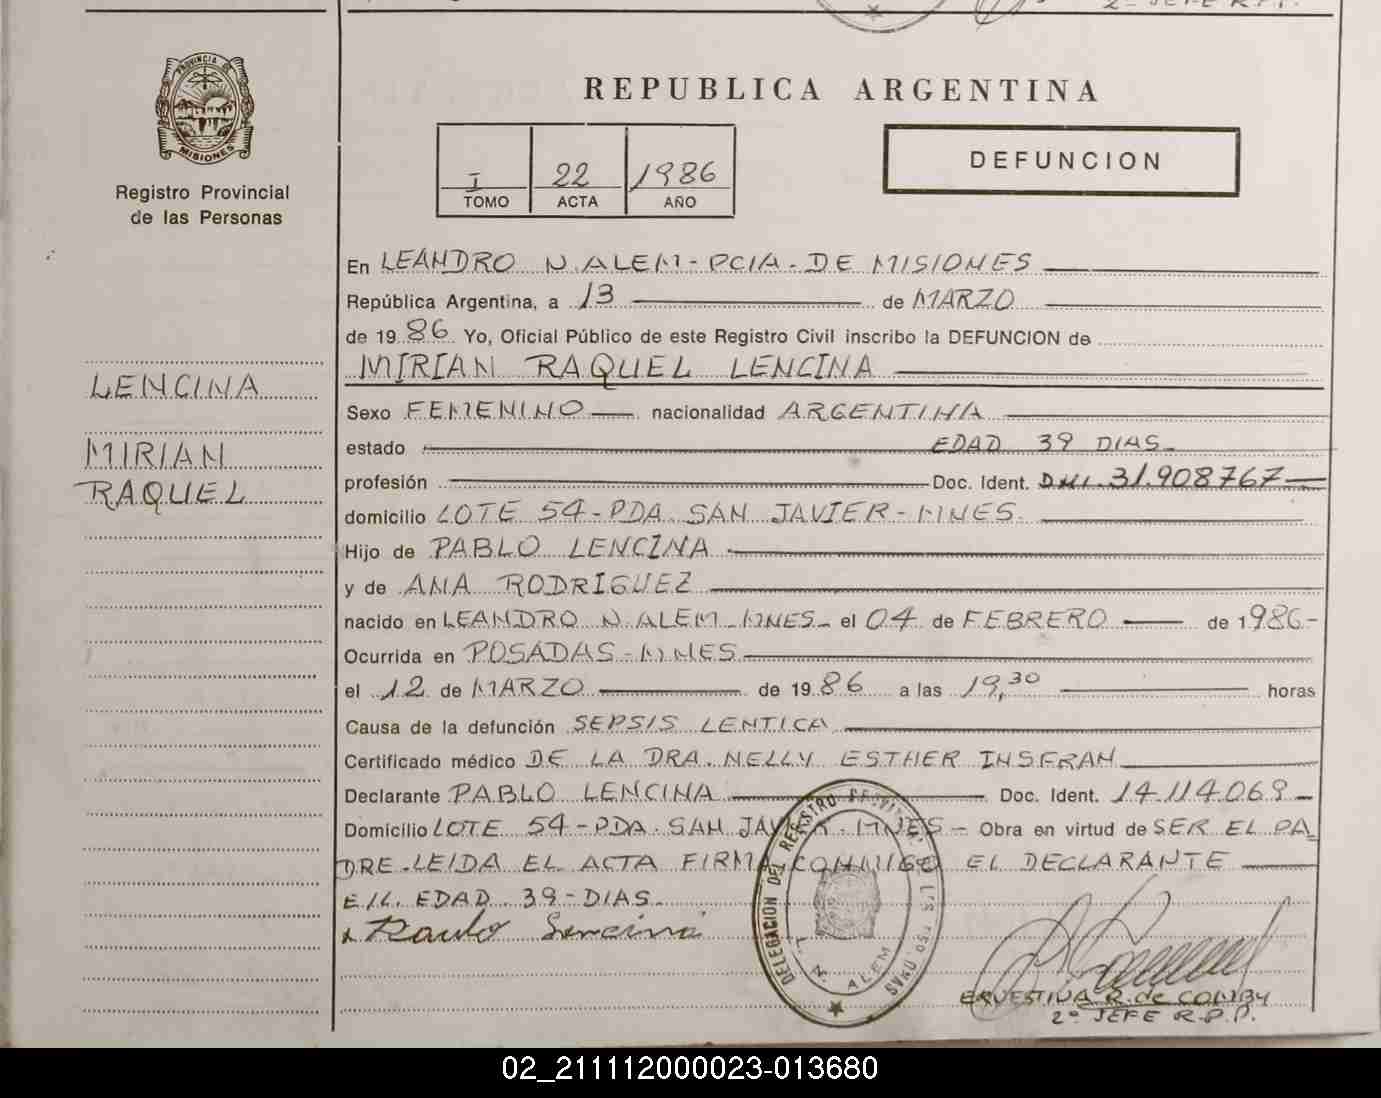 PROVINCIA DE
MISIONES
Registro Provincial
de las Personas
LENCINA
MIRIAN
RAQUEL
2º JEFE R.P.P.
REPUBLICA ARGENTINA
I 22 1986
TOMO ACTA AÑO
DEFUNCION
En LEANDRO N. ALEM - PCIA. DE MISIONES
República Argentina, a 13 de MARZO
de 1986 Yo, Oficial Público de este Registro Civil inscribo la DEFUNCION de
MIRIAN RAQUEL LENCINA
Sexo FEMENINO nacionalidad ARGENTINA
estado EDAD 39 DIAS
profesión Doc. Ident. DNI. 31.908767
domicilio LOTE 54 - PDA. SAN JAVIER - MNES.
Hijo de PABLO LENCINA
y de ANA RODRIGUEZ
nacido en LEANDRO N. ALEM - MNES - el 04 de FEBRERO de 1986 -
Ocurrida en POSADAS - MNES
el 12 de MARZO de 1986 a las 19,30 horas
Causa de la defunción SEPSIS LENTICA
Certificado médico DE LA DRA. NELLY ESTHER INSFRAN
Declarante PABLO LENCINA Doc. Ident. 14.114.069
Domicilio LOTE 54 - PDA. SAN JAVIER. MNES - Obra en virtud de SER EL PA
DRE - LEIDA EL ACTA FIRMA CONMIGO EL DECLARANTE
E/L. EDAD. 39 - DIAS.
Paulo Lencina
DELEGACION DEL REGISTRO PROVINCIAL DE LAS PERSONAS
L. N. ALEM
ERNESTINA R. de COMBY
2º JEFE R.P.P.
02_211112000023-013680